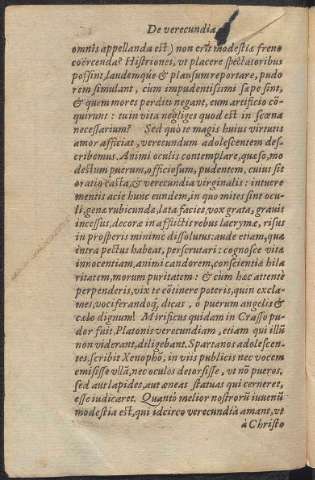 De verecundia
omnis appellanda est) non erit modestiæ freno
coërcenda? Histriones, vt placere spectatoribus
possint, laudemque & plausum reportare, pudo
rem simulant, cum impudentissimi sæpe sint,
& quem mores perditi negant, cum artificio cō-
quirunt: tu in vita negliges quod est in scæna
necessarium? Sed quo te magis huius virtutis
amor afficiat, verecundum adolescentem des-
cribemus. Animi oculis contemplare, quæso, mo
destum puerum, officiosum, pudentem, cuius sit
oratio casta, & verecundia virginalis: intuere
mentis acie hunc eundem, in quo mites sint ocu-
li, genæ rubicundæ, læta facies, vox grata, grauis
incessus, decoræ in afflictis rebus lacrymæ, risus
in prosperis minimè dissolutus: aude etiam, quæ
intra pectus habeat, perscrutari: cognosce vitæ
innocentiam, animi candorem, conscientiæ hila
ritatem, morum puritatem: & cùm hæc attentè
perpenderis, vix te cōtinere poteris, quin excla-
mes, vociferandoq́; dicas, ô puerum angelis &
cælo dignum! Mirificus quidam in Crasso pu-
dor fuit. Platonis verecundiam, etiam qui illū
non viderant, diligebant. Spartanos adolescen-
tes, scribit Xenophō, in viis publicis nec vocem
emisisse vllā, nec oculos detorsisse, vt nō pueros,
sed aut lapides, aut æneas statuas qui cerneret,
esse iudicaret. Quantò melior nostrorū iuuenū
modestia est, qui idcirco verecundiā amant, vt
à Christo